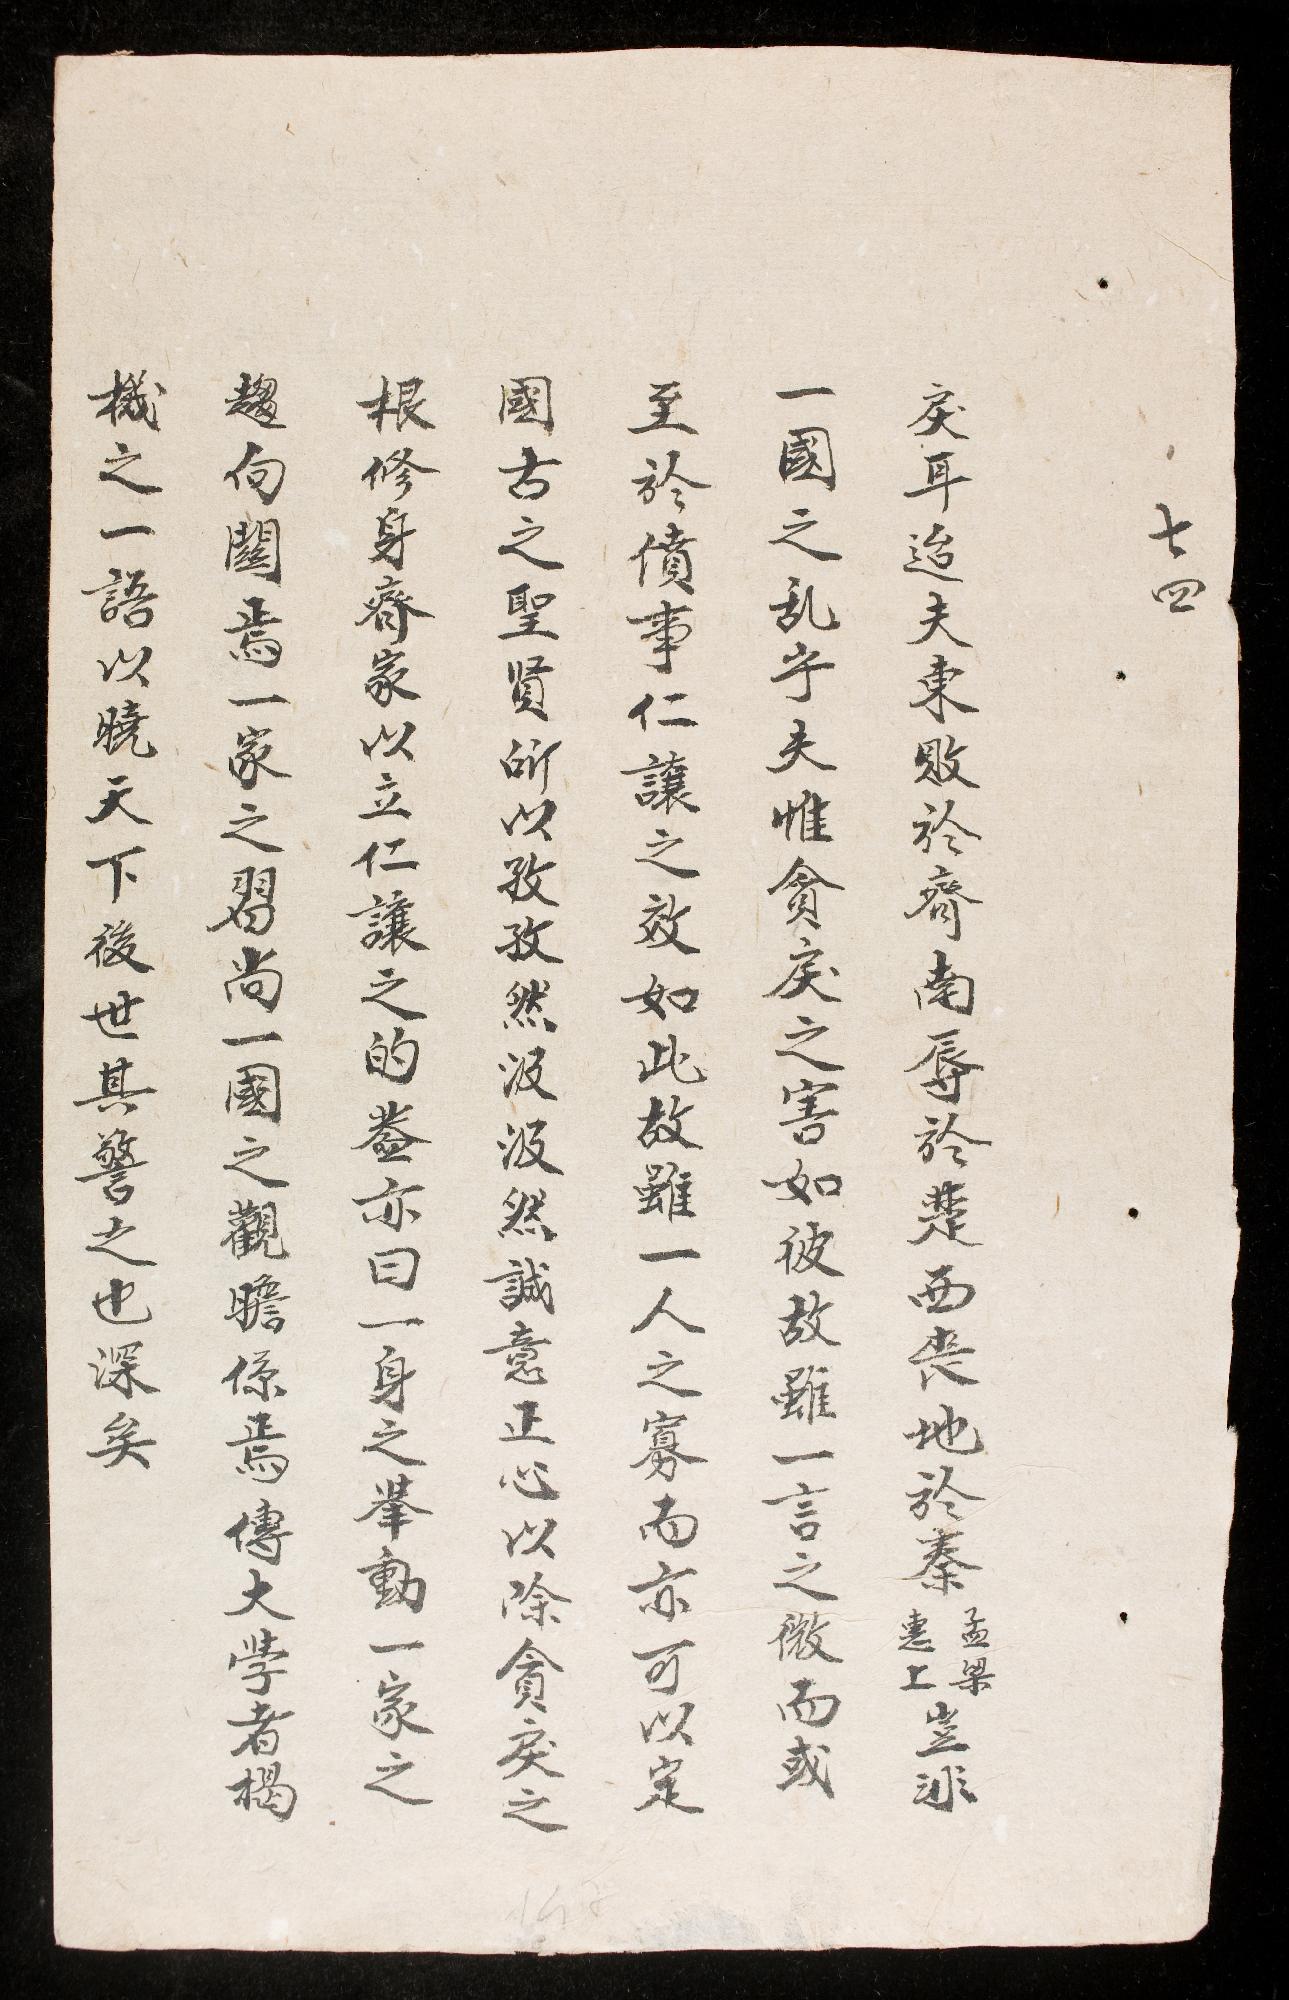 七四
戾耳迨夫東敗於齊南辱於楚西喪地於秦孟梁惠上豈非
一國之乱乎夫惟貪戾之害如彼故雖一言之微而或
至於僨事仁讓之效如此故雖一人之寡而亦可以定
國古之聖賢所以孜孜然汲汲然誠意正心以除貪戾之
根修身齊家以立仁讓之的盖亦曰一身之举動一家之
趨向關焉一家之習尚一國之觀瞻係焉傳大学者揭
機之一語以曉天下後世其警之也深矣